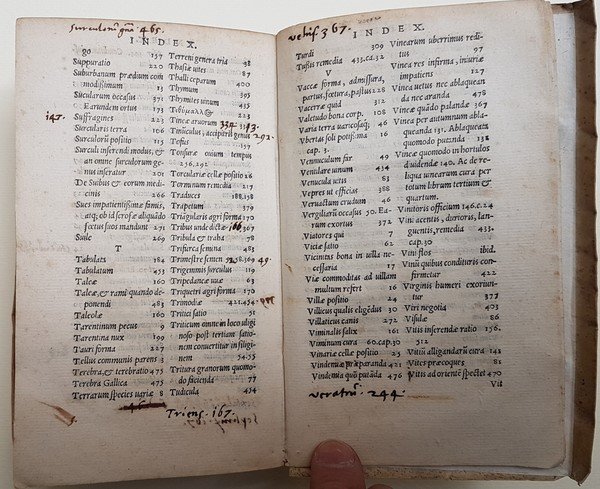 surculorū 465.
INDEX.
go 157
Suppuratio 220
Suburbanum prædium com
modissimum 13
Surculorum occasus 371
Earundem ortus 133
147. Suffragines 223
Surcularis terra 166
Surculorū positio 115
Surculi inserendi modus, &
an omne surculorum ge-
nus inseratur 201
De Subus & eorum medi-
cinis 266
Sues impatientissimæ famis,
atq; ob id scrofas aliquādo
fœtus suos mandunt 271
Suale 269
T
Tabulata 184
Tabulatum 453
Taleæ 160
Taleæ, & rami quando de-
ponendi 483
Taleolæ 160
Tarentinum pecus 9
Tarentina nux 199
Tauri forma 227
Tellus communis parens 3
Terebra, & terebratio 475
Terebra Gallica 475
Terrarum species variæ 8
Terreni genera tria 48
Thasiæ vites 87
Thalli ceparum 400
Thymum 395
Thymites vinum 435
223
Tineæ aruorum 334. 313.
Tinūculus, accipitris genus 292.
Tofus 157
Tonsuræ ouium tempus
236.292
Torculariæ cellæ positio 26
Torminum remedia 219
Traduces 188.138
Trapetum 379
Triangularis agri forma 170
Tribus unde dictæ 166 367
Tribula & traha 78
Trifurca semina 483
Trimestre semen 52.58.169 49.
Trigemmis surculus 119
Tripedaneæ uuæ 63
Triquetri agri forma 170
Trimodiæ 421.454
Tritici satio 51
Triticum omne in loco uligi
noso post tertiam satio-
nem conuertitur in siligi
nem 54.55
Tritura granorum quomo-
do facienda 77
Tudicula 454
Triens. 167.
vehis 367. INDEX.
Turdi 309
Tussis remedia 433.ca.32
V
Vaccæ forma, admissura,
partus, fœtura, pastus 228
Vacerræ quid 312
Valetudo bona corp. 108
Varia terra uaricosaq; 46
Vbertas soli potissima 16
cap. 3.
Vennuculum far 49
Venulare unum 434
Venucula uitis 83
Vepres ut efficias 388
Veruactum 46
Vergiliarū occasus 50. Ea-
rum exortus 372
Viatores qui 7
Viciæ satio 62
Vicinitas bona in uilla ne-
cessaria 17
Viæ commoditas ad uillam
multum refert 16
Villæ positio 24
Villicus qualis eligēdus 30
Villaticus canis 272
Viminalis salix 161
Viminum cura 60.cap.30
Vinariæ cellæ positio 25
Vindemiæ præparanda 421
Vindemia quō putāda 476
veratrū. 244.
Vinearum uberrimus redi-
tus 97
Vinea res infirma, iniuriæ
impatiens 127
Vinea uetus nec ablaquean
da nec aranda 478
Vineæ quādo palandæ 367
Vinea per autumnum abla-
queanda 131. Ablaqueatæ
quomodo putandæ 132
Vineæ quomodo in hortulos
diuidendæ 140. Ac de re-
liqua uinearum cura per
totum librum tertium &
quartum.
Vinitoris officium 146.c.24
Vini acentis, durioris, lan-
guentis, remedia 433.
cap.30
Vini flos ibid.
Vinū quibus conditiuis con-
firmetur 422
Virginis humeri exorun-
tur 377
Viri negotia 403
Visula 86
Vitis inferendæ ratio 156.
512
Vitiū alligandarū cura 142
Vites præcoques 82
Vitis ad orientē spectet 470
Vit